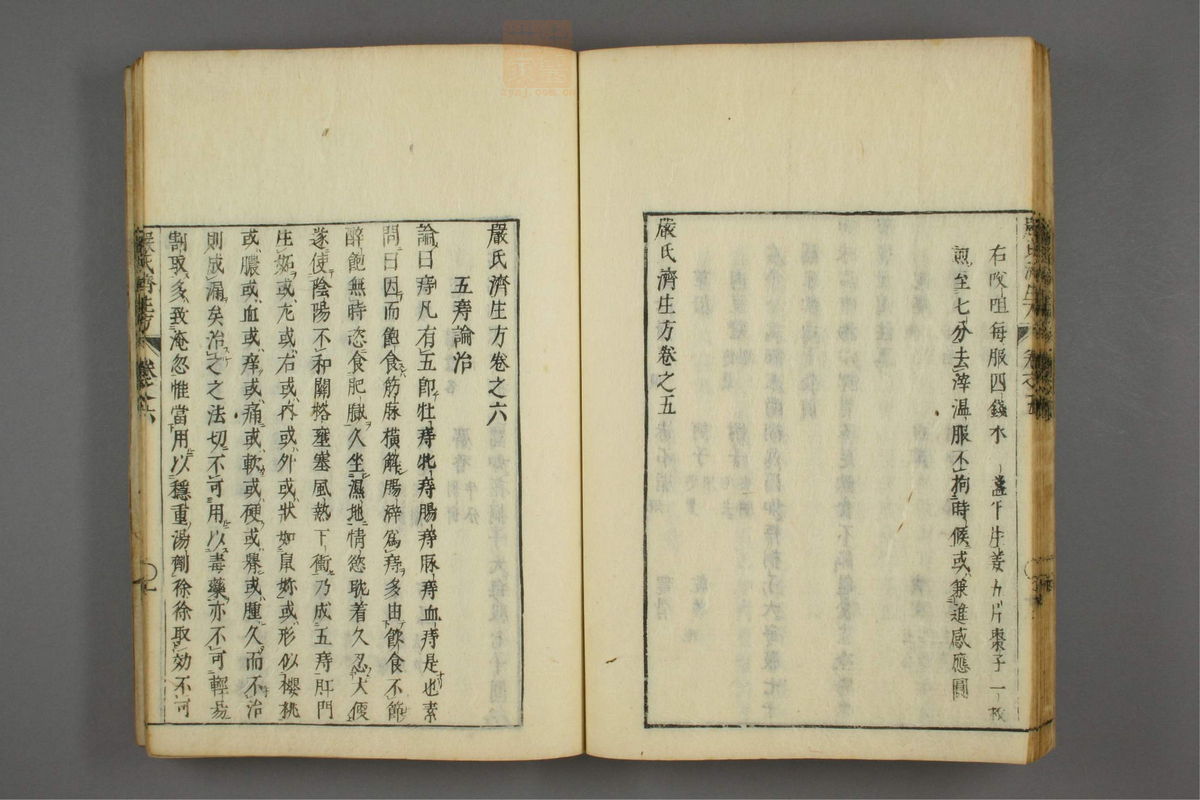 右㕮咀每服四錢水一盞半生姜九片棗子一枚
煎至七分去滓温服不拘時候或兼進感應圓
嚴氏濟生方卷之五
嚴氏濟生方卷之六
五痔論治
論曰痔凡有五卽牡痔牝痔腸痔脉痔血痔是也素
問曰因而飽食筋脉橫解腸澼爲痔多由飲食不節
醉飽無時恣食肥膩久坐濕地情慾耽着久忍大便
遂使陰陽不和關格壅塞風熱下衝乃成五痔肛門
生㚻或左或右或内或外或狀如鼠妳或形似櫻桃
或膿或血或痒或痛或軟或硬或腫久而不治
則成漏矣治之之法切不可用以毒藥亦不可輕易
割取多致淹忽惟當用以穩重湯劑徐徐取効不可
嚴氏濟生方 卷之六